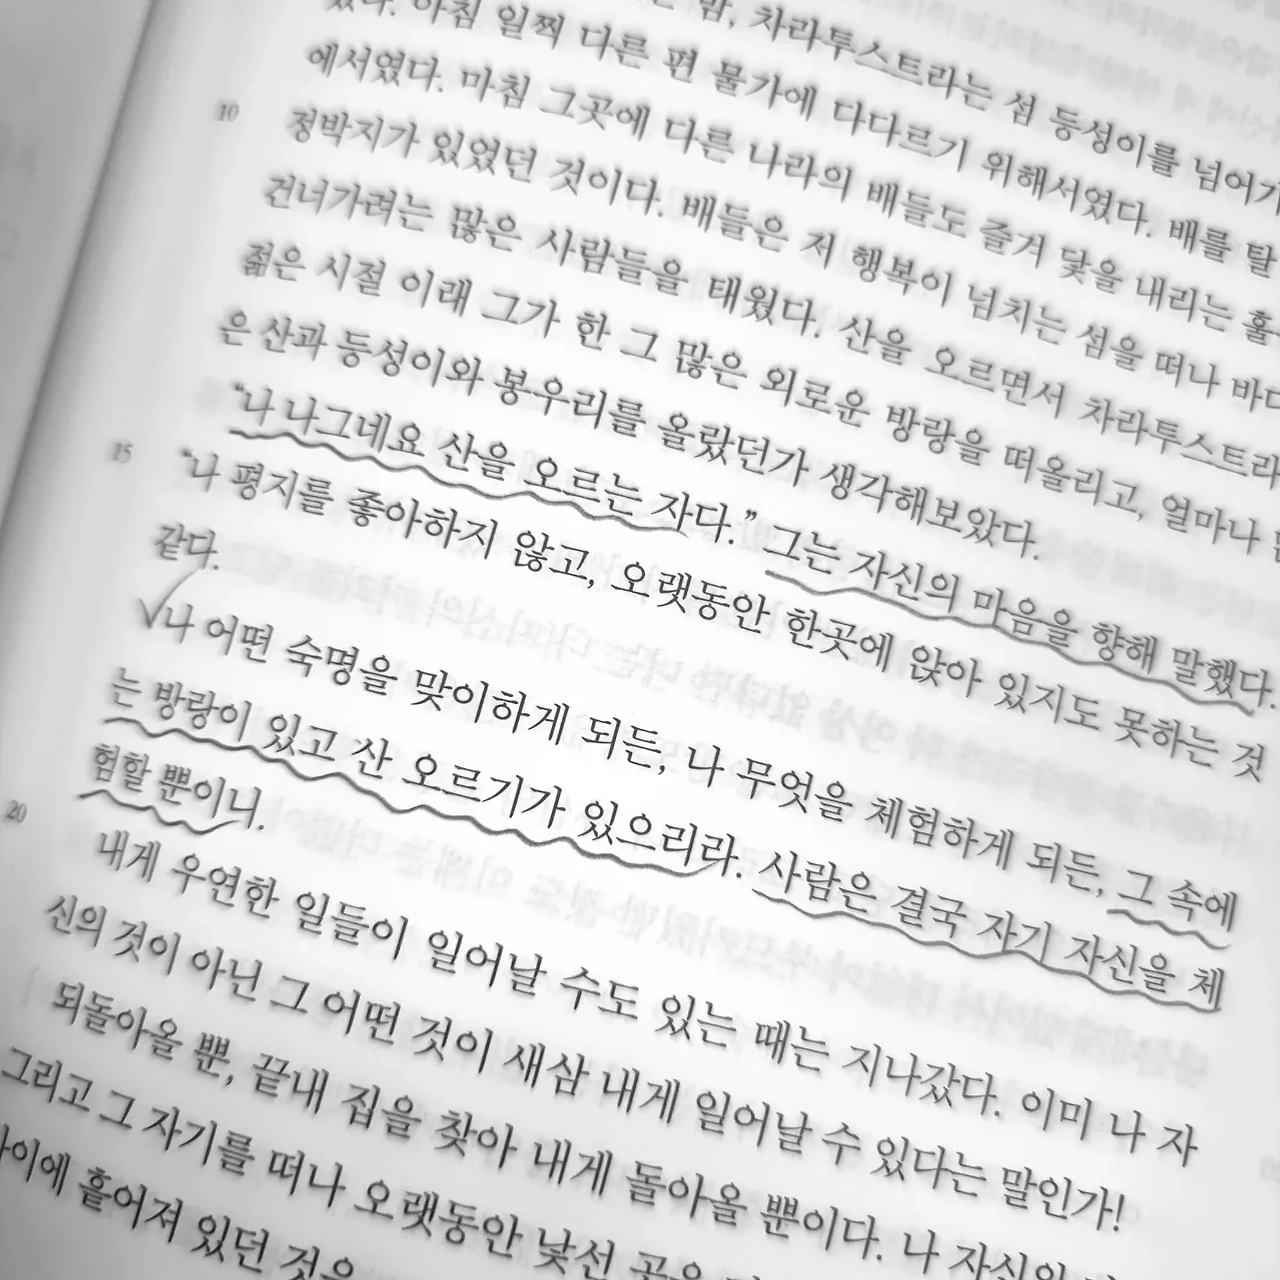 아침 일찍 다른 편 물가에 다다르기 위해서였다. 배를 탈
밤, 차라투스트라는 섬 등성이를 넘어가
에서였다. 마침 그곳에 다른 나라의 배들도 즐겨 닻을 내리는 훌
10 정박지가 있었던 것이다. 배들은 저 행복이 넘치는 섬을 떠나 바다
건너가려는 많은 사람들을 태웠다. 산을 오르면서 차라투스트라
젊은 시절 이래 그가 한 그 많은 외로운 방랑을 떠올리고, 얼마나
은 산과 등성이와 봉우리를 올랐던가 생각해보았다.
“나 나그네요 산을 오르는 자다.” 그는 자신의 마음을 향해 말했다.
15 “나 평지를 좋아하지 않고, 오랫동안 한곳에 앉아 있지도 못하는 것
같다.
나 어떤 숙명을 맞이하게 되든, 나 무엇을 체험하게 되든, 그 속에
는 방랑이 있고 산 오르기가 있으리라. 사람은 결국 자기 자신을 체
험할 뿐이니.
20 내게 우연한 일들이 일어날 수도 있는 때는 지나갔다. 이미 나 자
신의 것이 아닌 그 어떤 것이 새삼 내게 일어날 수 있다는 말인가!
되돌아올 뿐, 끝내 집을 찾아 내게 돌아올 뿐이다. 나 자신의
그리고 그 자기를 떠나 오랫동안 낯선 곳을
사이에 흩어져 있던 것은